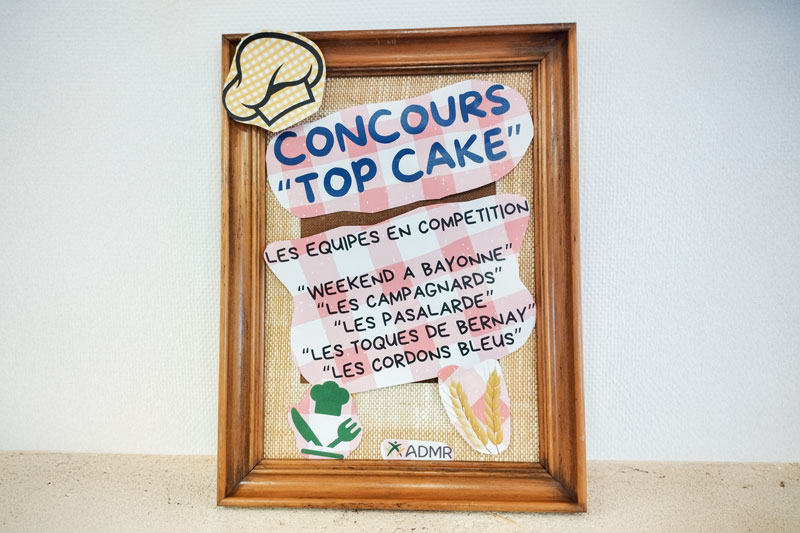 CONCOURS
“TOP CAKE”
LES EQUIPES EN COMPETITION
“WEEKEND A BAYONNE”
“LES CAMPAGNARDS”
“LES PASALARDE”
“LES TOQUES DE BERNAY”
“LES CORDONS BLEUS”
ADMR